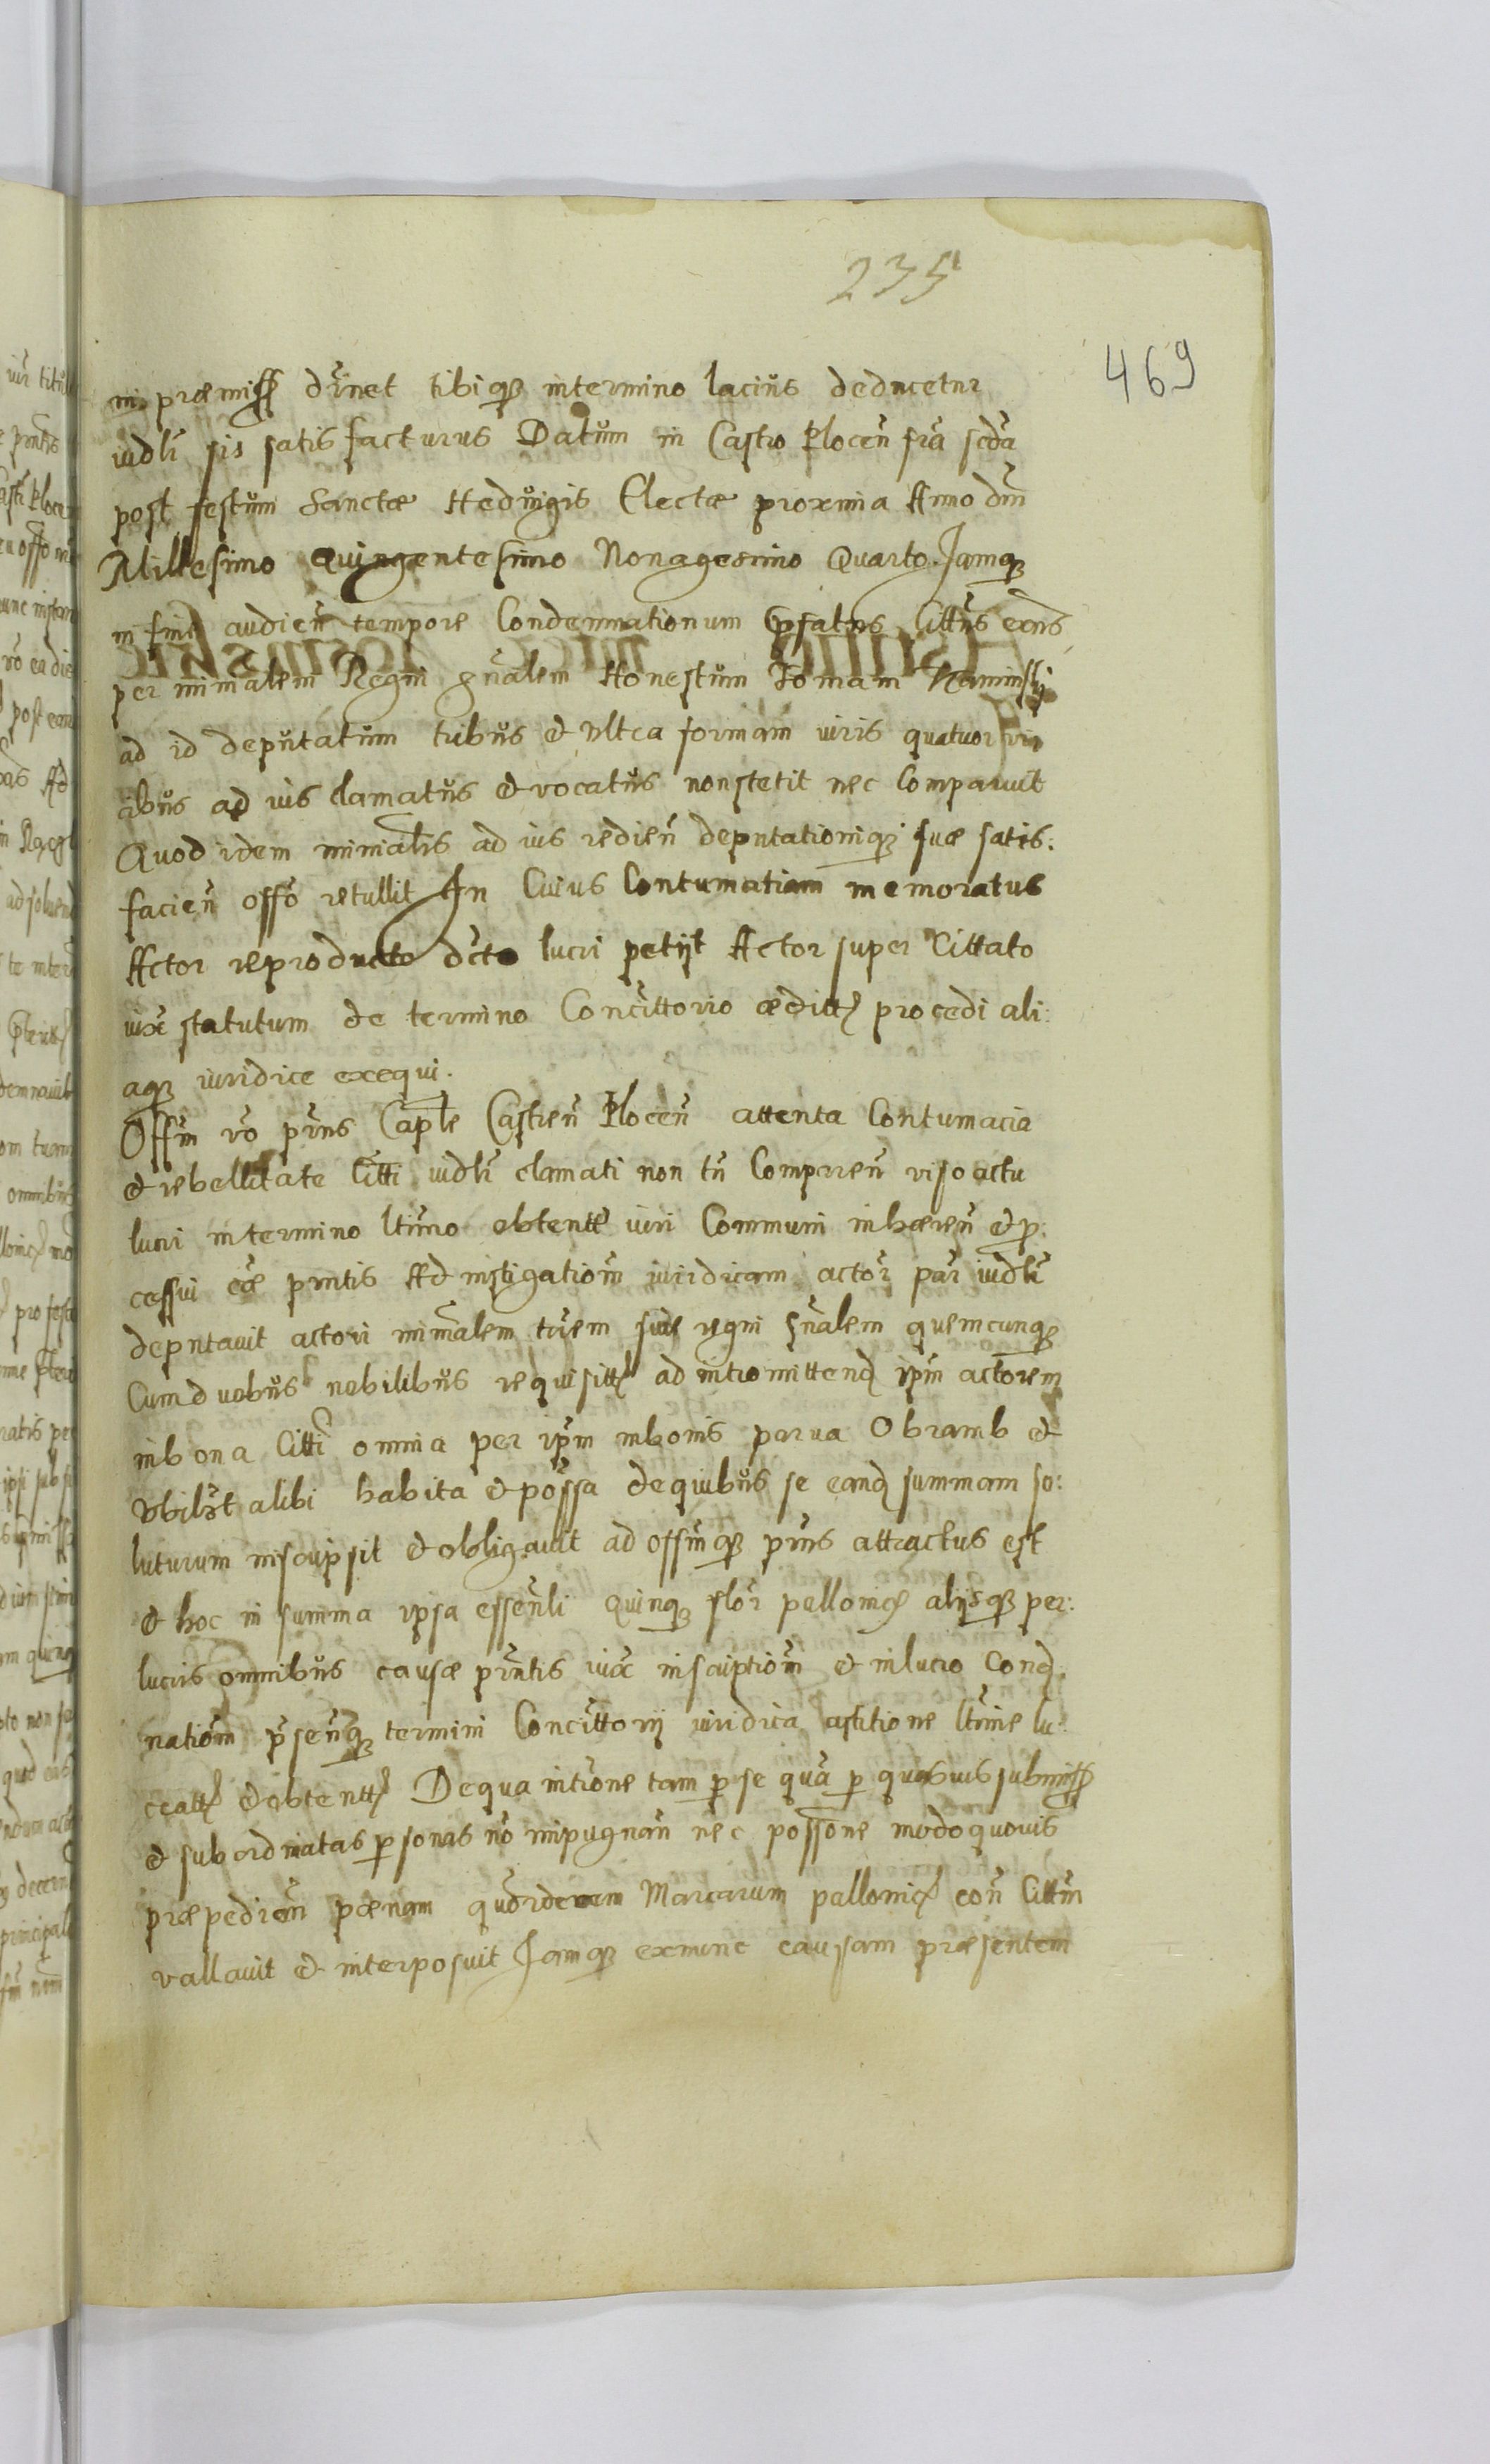 235
469
in præmiss drnet tibiq3 intermino lacius deducetur
iudlr sis satisfacturus Datum in Castro Plocen fria scda
post festum Sanctæ Heduigis Electæ proxima Anno dni
Millesimo Quingentesimo Nonagesimo Quarto Jamq3
in fine audien tempore Condemnationum Præfatus Cittus exns
per mimalem Regni gnalem Honestum Tomam Kaminski
ad id deputatum tribus et vltra formam iuris quatuor vi
cibus ad ius clamatus et vocatus non stetit nec Comparuit
Quod idem minialis ad ius redien deputationiq3 suæ satis:
facien offo retullit In Cuius Contumatiam memoratus
Actor reproducto dcto lucri petijt Actor super Cittato
iux statutum de termino Concittorio ædittt procedi ali:
aq3 iuridice exequi.
Offm vo pns Caple Castren Plocen attenta Contumacia
et rebellitate Citti iudlr clamati non tn Comparen viso actu
lucri in termino ltimo obtentt iuri Communi inhæren et p:
cessui cæ pntis Ad instigationm iuridicam actor par iudlr
deputauit actori minalem trem siue regni gnalem quemcunq3
Cum duobus nobilibus requisitt ad intromittend ipm actorem
in bona Citti omnia per ipm in bonis parua Obramb et
vbilbt alibi habita et possa de quibus se eand summam so:
luturum inscripsit et obligauit ad offmq3 pns attractus est
et hoc in summa ipsa essenli quinq3 flor pollonic alijsq3 per:
lucris omnibus causæ pntis iux inscriptionm et in lucro Cond
nationm psenq3 termini Concittorij iuridica astitione ltime lu:
cratt et obtentt De qua intione tam p se qua p quasuis submiss
et subordinatas psonas no impugnan nec possione modo quouis
præpedien pænam quordecem Marcarum pollonic con Cittm
vallauit et interposuit Jamq3 exnunc causam præsentem